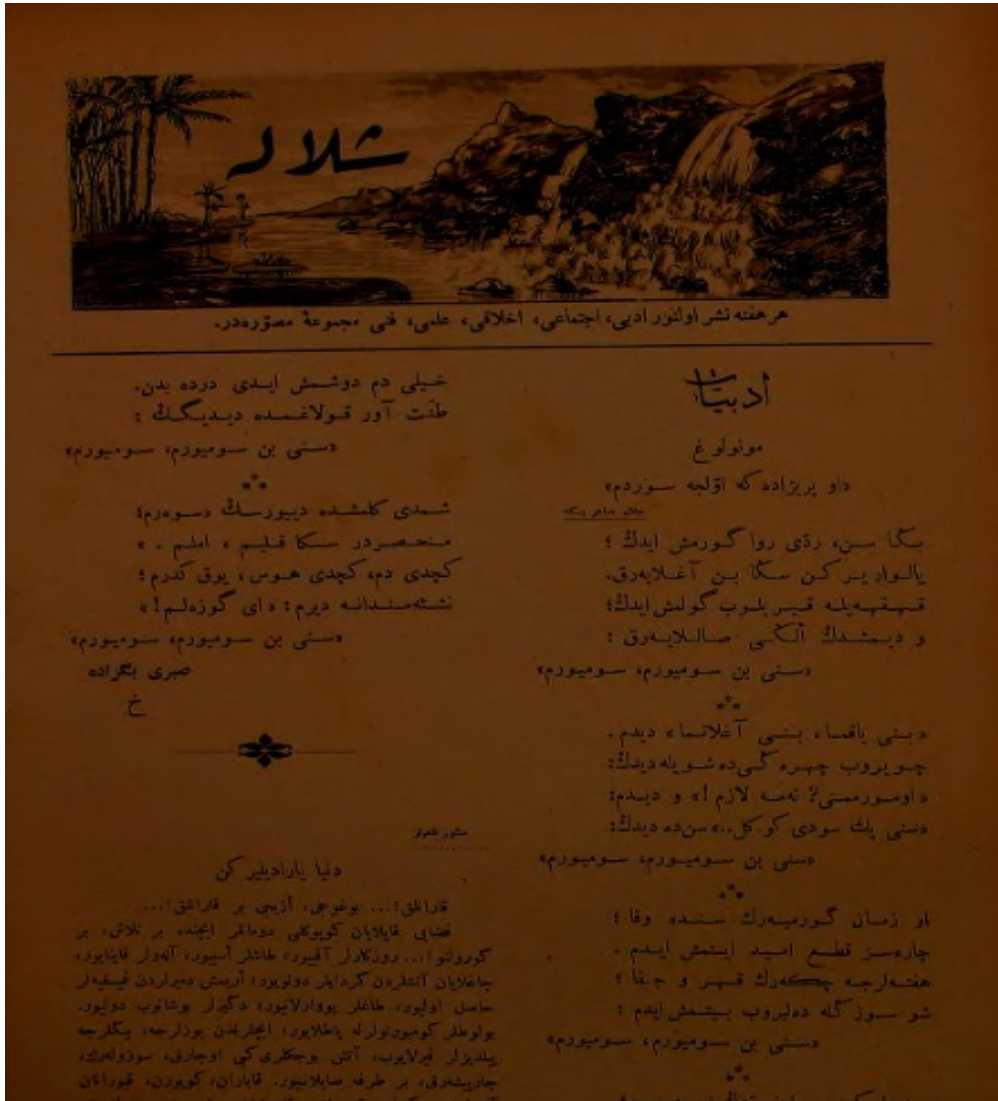 شلاله
هر هفته نشر اولنور ادبی، اجتماعی، اخلاقی، علمی، فنی مجموعهٔ مصوّره‌در.
ادبیات
مونولوغ
«او پریزاده که اوّلجه سوردم»
بڭا سن، ردّی روا گورمش ایدڭ ؛
یالواریر کن سڭا بن آغلایه‌رق.
قهقهه‌یله قیریلوب گولمش ایدڭ؛
و دیمشدڭ الڭی صاللایه‌رق :
«سنی بن سومیورم، سومیورم»
«بنی یاقما، بنی آغلاتما» دیدم .
چویروب چهره ڭی‌ده شویله دیدڭ:
«اومورممی? نه‌مه لازم !» و دیدم:
«سنی پك سودی کوکل..» سن‌ده دیدڭ؛
«سنی بن سومیورم، سومیورم»
او زمان گورمیه‌رك سنده وفا ؛
چاره‌سز قطع امید ایتمش ایدم .
هفته‌لرجه چکه‌رك قهر و جفا ؛
شو سوزڭله ده‌لیروب بیتمش ایدم :
«سنی بن سومیورم، سومیورم»
خیلی دم دوشمش ایدی درده بدن.
طقت آور قولاغمده دیدیگڭ :
«سنی بن سومیورم، سومیورم»
شمدی کلمشده دییورسڭ «سوه‌رم؛
منحصردر سڭا قلبم ، املم . »
کچدی دم، کچدی هوس، یوق کدرم؛
نشئه‌مندانه دیرم : «ای گوزه‌لم!»
«سنی بن سومیورم، سومیورم»
صبری بگزاده
خ
منثور شعرلر
دنیا یارادیلیر کن
قارانلق!... بوغوجی، أزیجی بر قارانلق!...
فضایی قاپلایان کوپوکلی دومانلر ایچنده بر تلاش، بر
کورولتو !... روزکارلر آقیور، طاشلر أسیور، آله‌ولر قاینایور،
چاغلایان آتشلردن گردابلر دونویور، أریمش دمیرلردن فیسقیه‌لر
حاصل اولیور، طاغلر یووارلانیور، دڭیزلر بوشانوب دولیور.
بولوطلر کومبورتولرله پاطلایور، ایچلرندن یوزلرجه، بیڭلرجه
ییلدیزلر فیرلایوب، آتش بوجکلری‌کبی اوچارق، سوزوله‌رك،
چارپیشه‌رق، بر طرفه صاپلانیور. قاباران، کوپورن، قیورانان